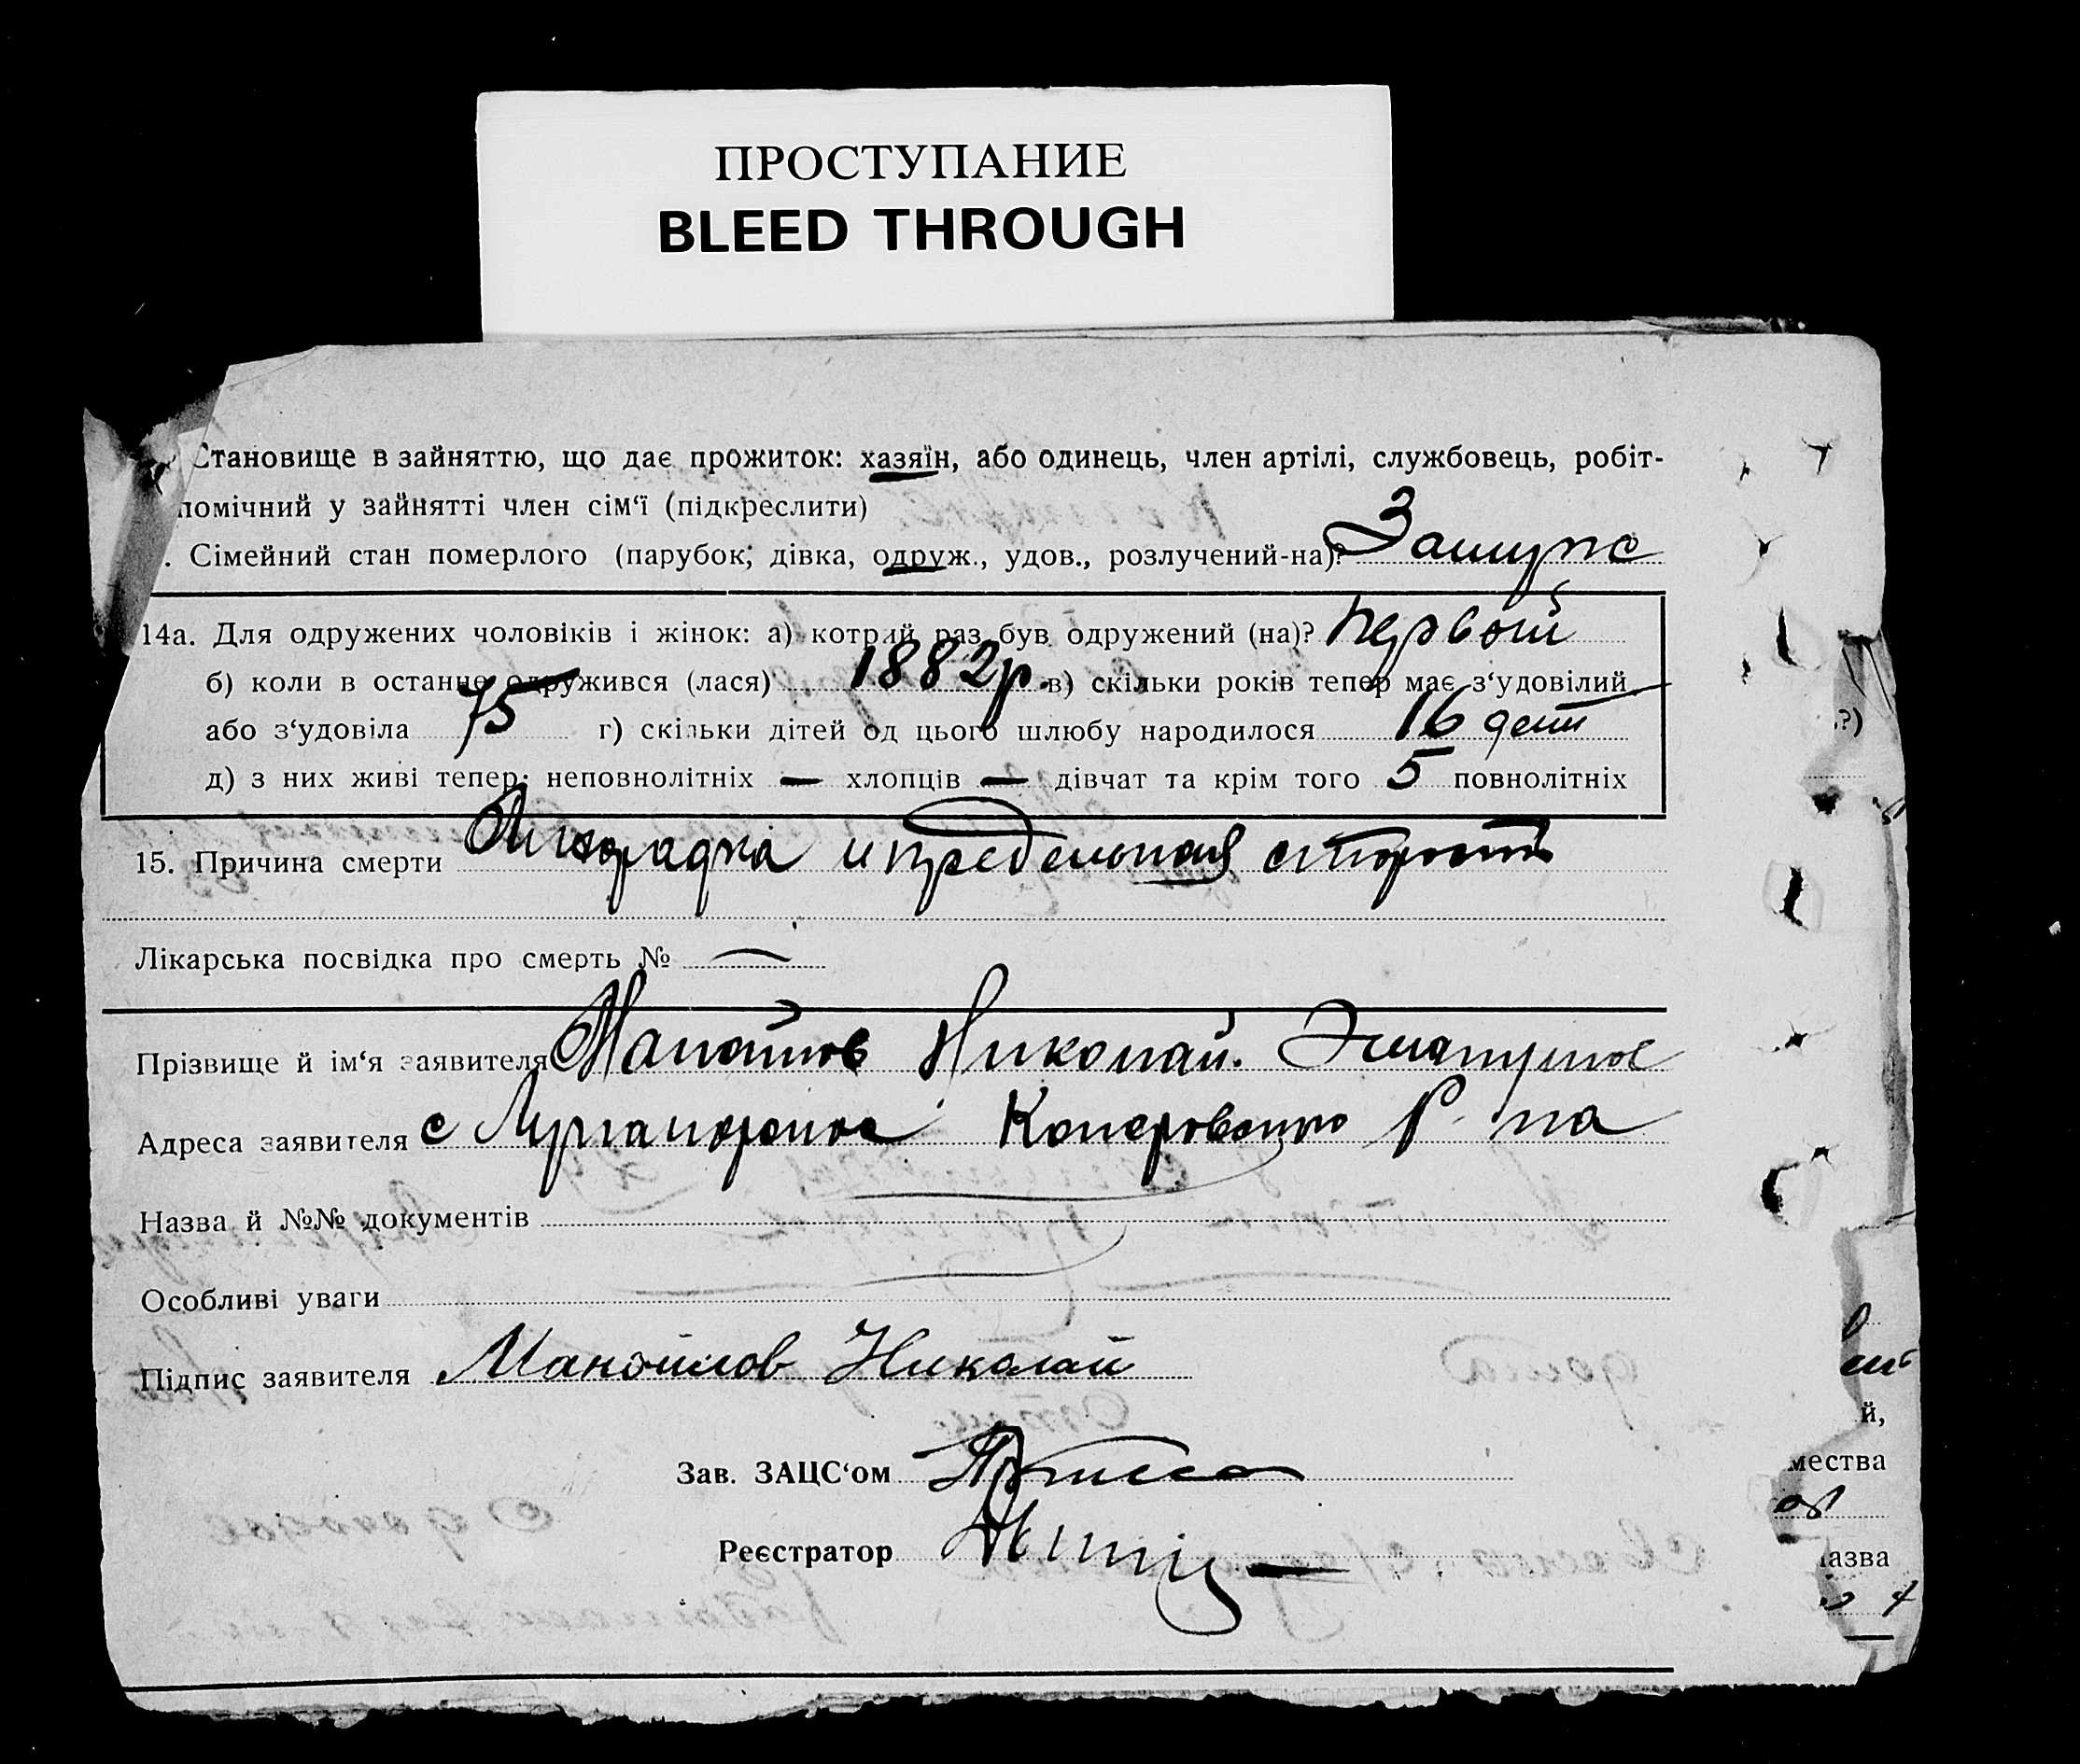 ПРОСТУПАНИЕ
BLEED THROUGH
Становище в зайняттю, що дає прожиток: хазяїн, або одинець, член артілі, службовець, робіт-
помічний у зайнятті член сім‘ї (підкреслити)
. Сімейний стан померлого (парубок, дівка, одруж., удов., розлучений-на)?
14а. Для одружених чоловіків і жінок: а) котрий раз був одружений (на)? первый
б) коли в останнє одружився (лася) 1882р. в) скільки років тепер має з‘удовілий
або з‘удовіла 75 г) скільки дітей од цього шлюбу народилося 16 дети
д) з них живі тепер: неповнолітніх — хлопців — дівчат та крім того 5 повнолітніх
15. Причина смерти Лихорадка и предельная старость
Лікарська посвідка про смерть № —
Прізвище й ім‘я заявителя Манойлов Николай.
Адреса заявителя с Р-на
Назва й №№ документів
Особливі уваги
Підпис заявителя Манойлов Николай
Зав. ЗАЦС‘ом
Реєстратор
?)
й,
мества
назва